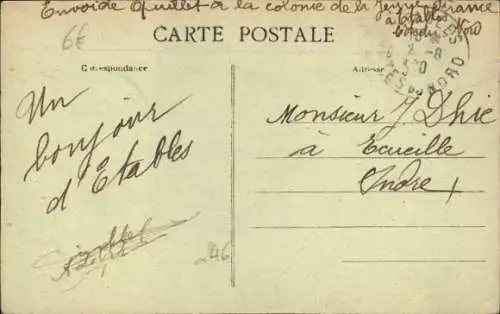 Envoi de Quillet à la colonie de la Jeune France
à Etables
Côtes du Nord
6€
CARTE POSTALE
2-8
30
NORD
Correspondance
Adresse
Un
bonjour
d'Etables
Monsieur J. D'hie
à Ecueille
Indre
246